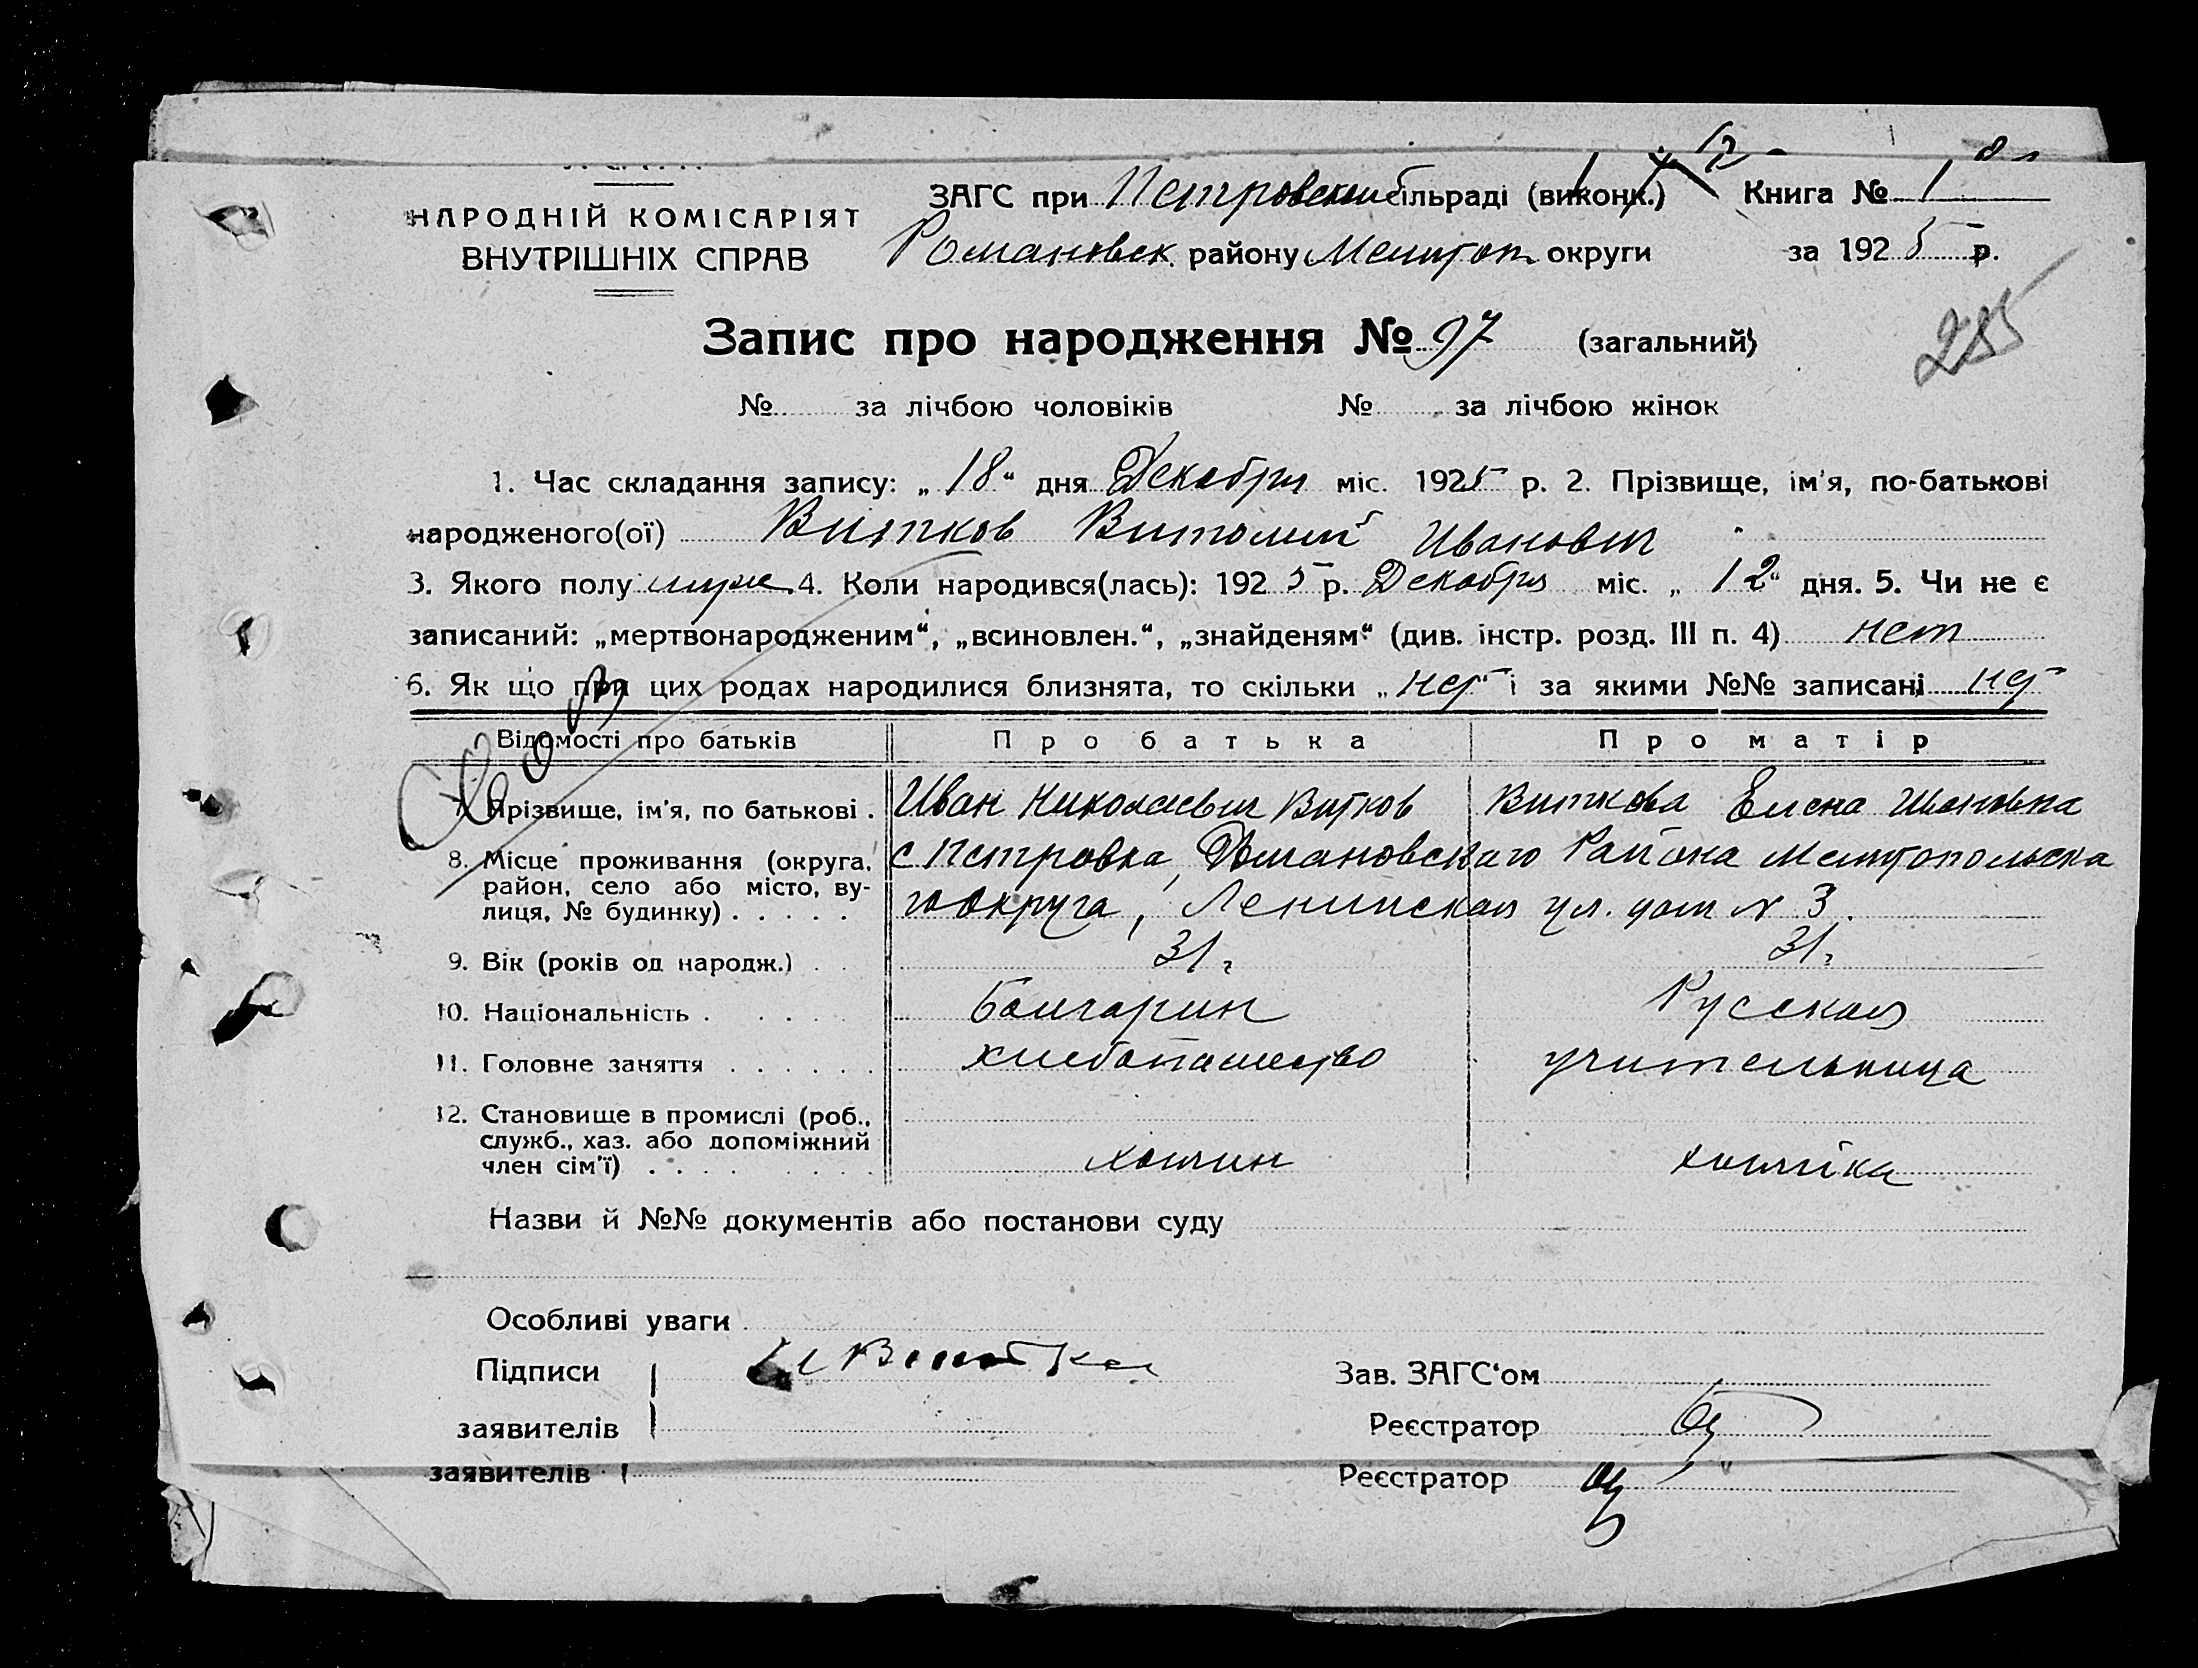 ЗАГС при Петровском сільраді (виконк.) Книга № 1
НАРОДНІЙ КОМІСАРІЯТ
ВНУТРІШНІХ СПРАВ
Романовск. району Мелитоп. округи за 1925 р.
Запис про народження № 97 (загальний)
285
№ за лічбою чоловіків № за лічбою жінок
1. Час складання запису: „18“ дня Декабря міс. 1925 р. 2. Прізвище, ім'я, по-батькові
народженого(ої) Витков Витолий Иванович
3. Якого полу муж. 4. Коли народився(лась): 1925 р. Декабря міс. „12“ дня. 5. Чи не є
записаний: „мертвонародженим“, „всиновлен.“, „знайденям“ (див. інстр. розд. III п. 4) нет
6. Як що при цих родах народилися близнята, то скільки „нет“ і за якими №№ записані нет
Відомості про батьків Про батька Про матір
7. Прізвище, ім'я, по батькові . Иван Николаевич Витков Виткова Елена Ивановна
8. Місце проживання (округа, с Петровка, Романовского Района Мелитопольска
район, село або місто, ву-
лиця, № будинку) . . . . . го округа, Ленинская ул. дом № 3.
9. Вік (років од народж.) . . 31 г. 31 г.
10. Національність . . . . . Болгарин Русская
11. Головне заняття . . . . . . хлебопашество учительница
12. Становище в промислі (роб.,
служб., хаз. або допоміжний
член сім'ї) . . . . . . . хозяин хозяйка
Назви й №№ документів або постанови суду
Особливі уваги
Підписи И Витков Зав. ЗАГС'ом
заявителів Реєстратор
заявителів Реєстратор